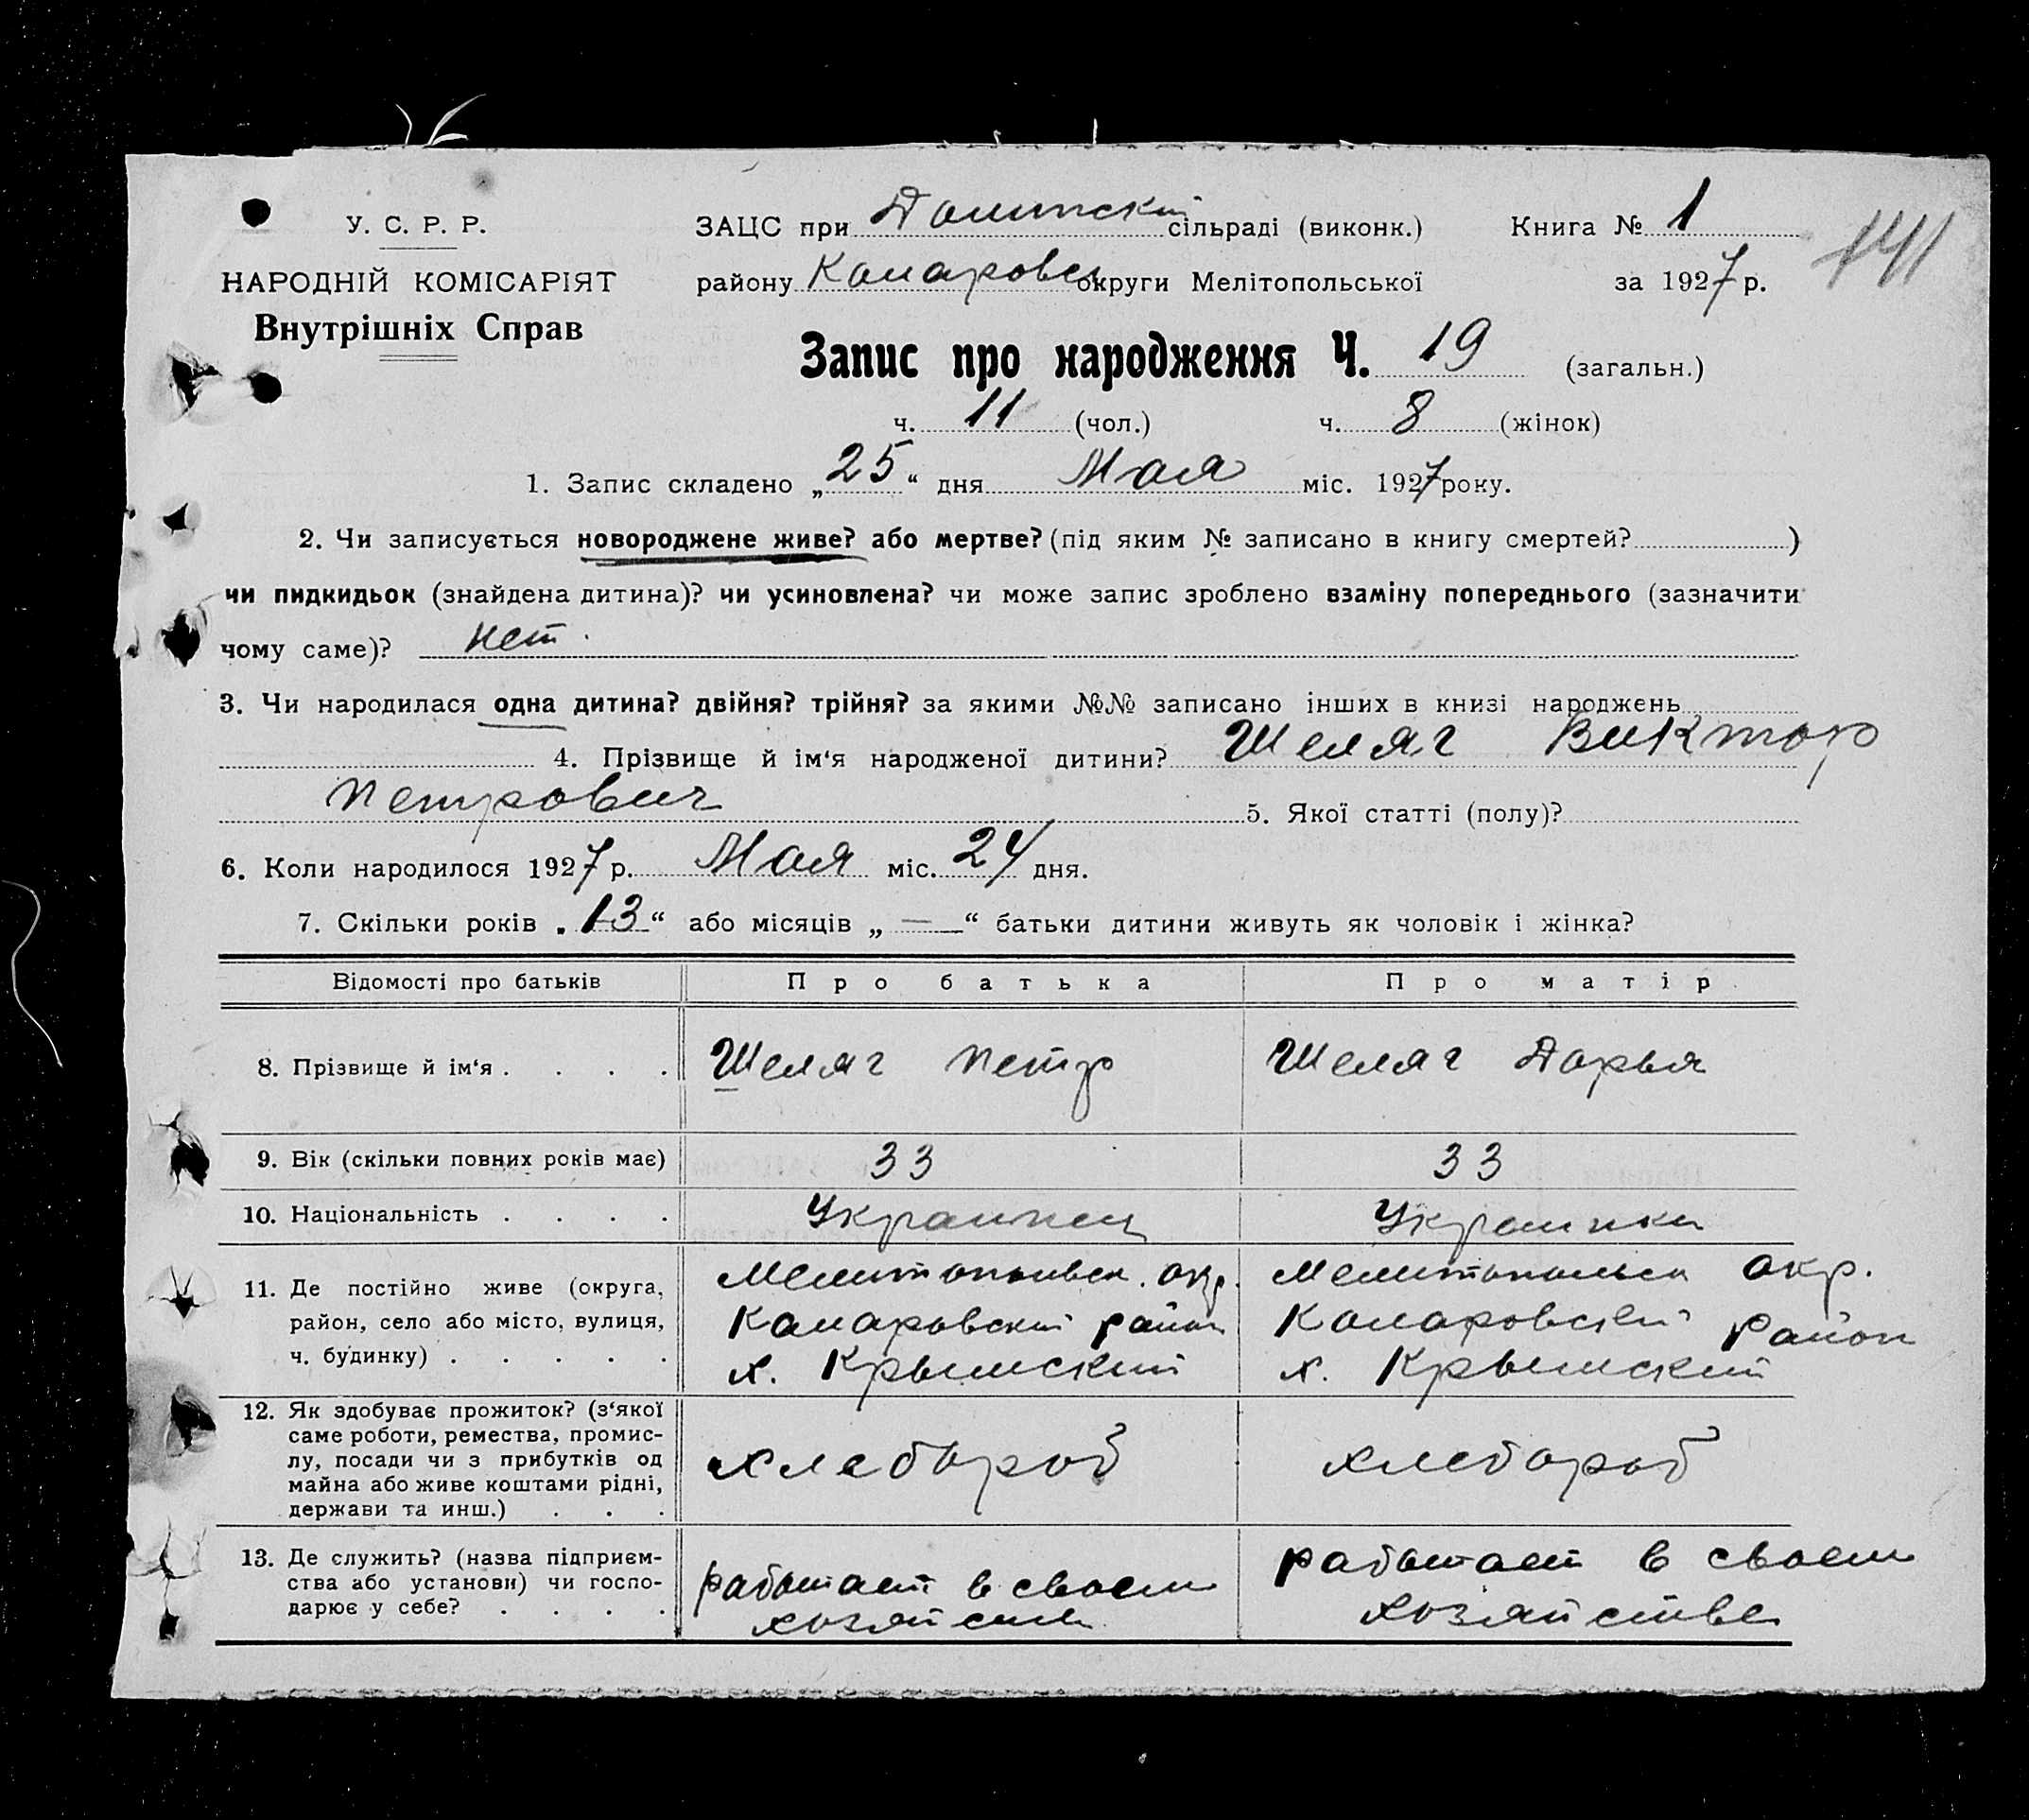 У. С. Р. Р.
НАРОДНІЙ КОМІСАРІЯТ
Внутрішніх Справ
ЗАЦС при Долинский сільраді (виконк.) Книга № 1
району Комаровск округи Мелітопольської за 1927 р.
141
Запис про народження Ч. 19 (загальн.)
ч. 11 (чол.) ч. 8 (жінок)
1. Запис складено „25“ дня Мая міс. 1927 року.
2. Чи записується новороджене живе? або мертве? (під яким № записано в книгу смертей? )
чи пидкидьок (знайдена дитина)? чи усиновлена? чи може запис зроблено взаміну попереднього (зазначити
чому саме)? нет.
3. Чи народилася одна дитина? двійня? трійня? за якими №№ записано інших в книзі народжень
4. Прізвище й ім‘я народженої дитини? Шеляг Виктор
Петрович 5. Якої статті (полу)?
6. Коли народилося 1927 р. Мая міс. 24 дня.
7. Скільки років „13“ або місяців „—“ батьки дитини живуть як чоловік і жінка?
Відомості про батьків Про батька Про матір
8. Прізвище й ім‘я . . . . Шеляг Петр Шеляг Дарья
9. Вік (скільки повних років має) 33 33
10. Національність . . . . Украинец Украинка
11. Де постійно живе (округа,
район, село або місто, вулиця,
ч. будинку) . . . . .
Мелитопольск. окр.
Комаровский район
х. Крымский
Мелитопольск окр.
Комаровский район
х. Крымский
12. Як здобуває прожиток? (з‘якої
саме роботи, ремества, промис-
лу, посади чи з прибутків од
майна або живе коштами рідні,
держави та инш.) . . .
хлебороб хлебороб
13. Де служить? (назва підприєм-
ства або установи) чи госпо-
дарює у себе? . . . .
работает в своем
хозяйстве
работает в своем
хозяйстве